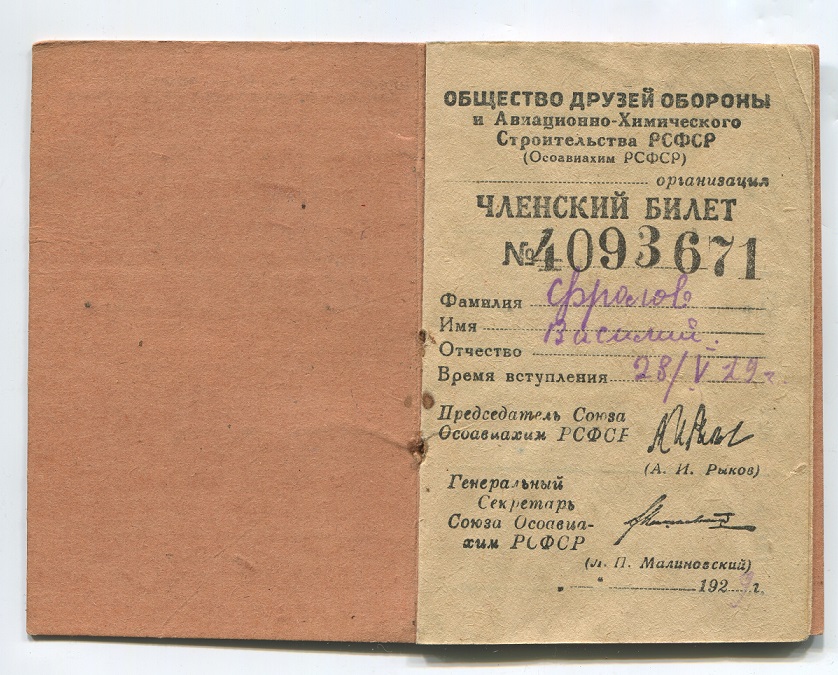 ОБЩЕСТВО ДРУЗЕЙ ОБОРОНЫ
и Авиационно-Химического
Строительства РСФСР
(Осоавиахим РСФСР)
организация
ЧЛЕНСКИЙ БИЛЕТ
№ 4093671
Фамилия Фролов
Имя Василий
Отчество
Время вступления 28/V 29 г.
Председатель Союза
Осоавиахим РСФСР
(А. И. Рыков)
Генеральный
Секретарь
Союза Осоавиа-
хим РСФСР
(Л. П. Малиновский)
„ — “ 1929 г.